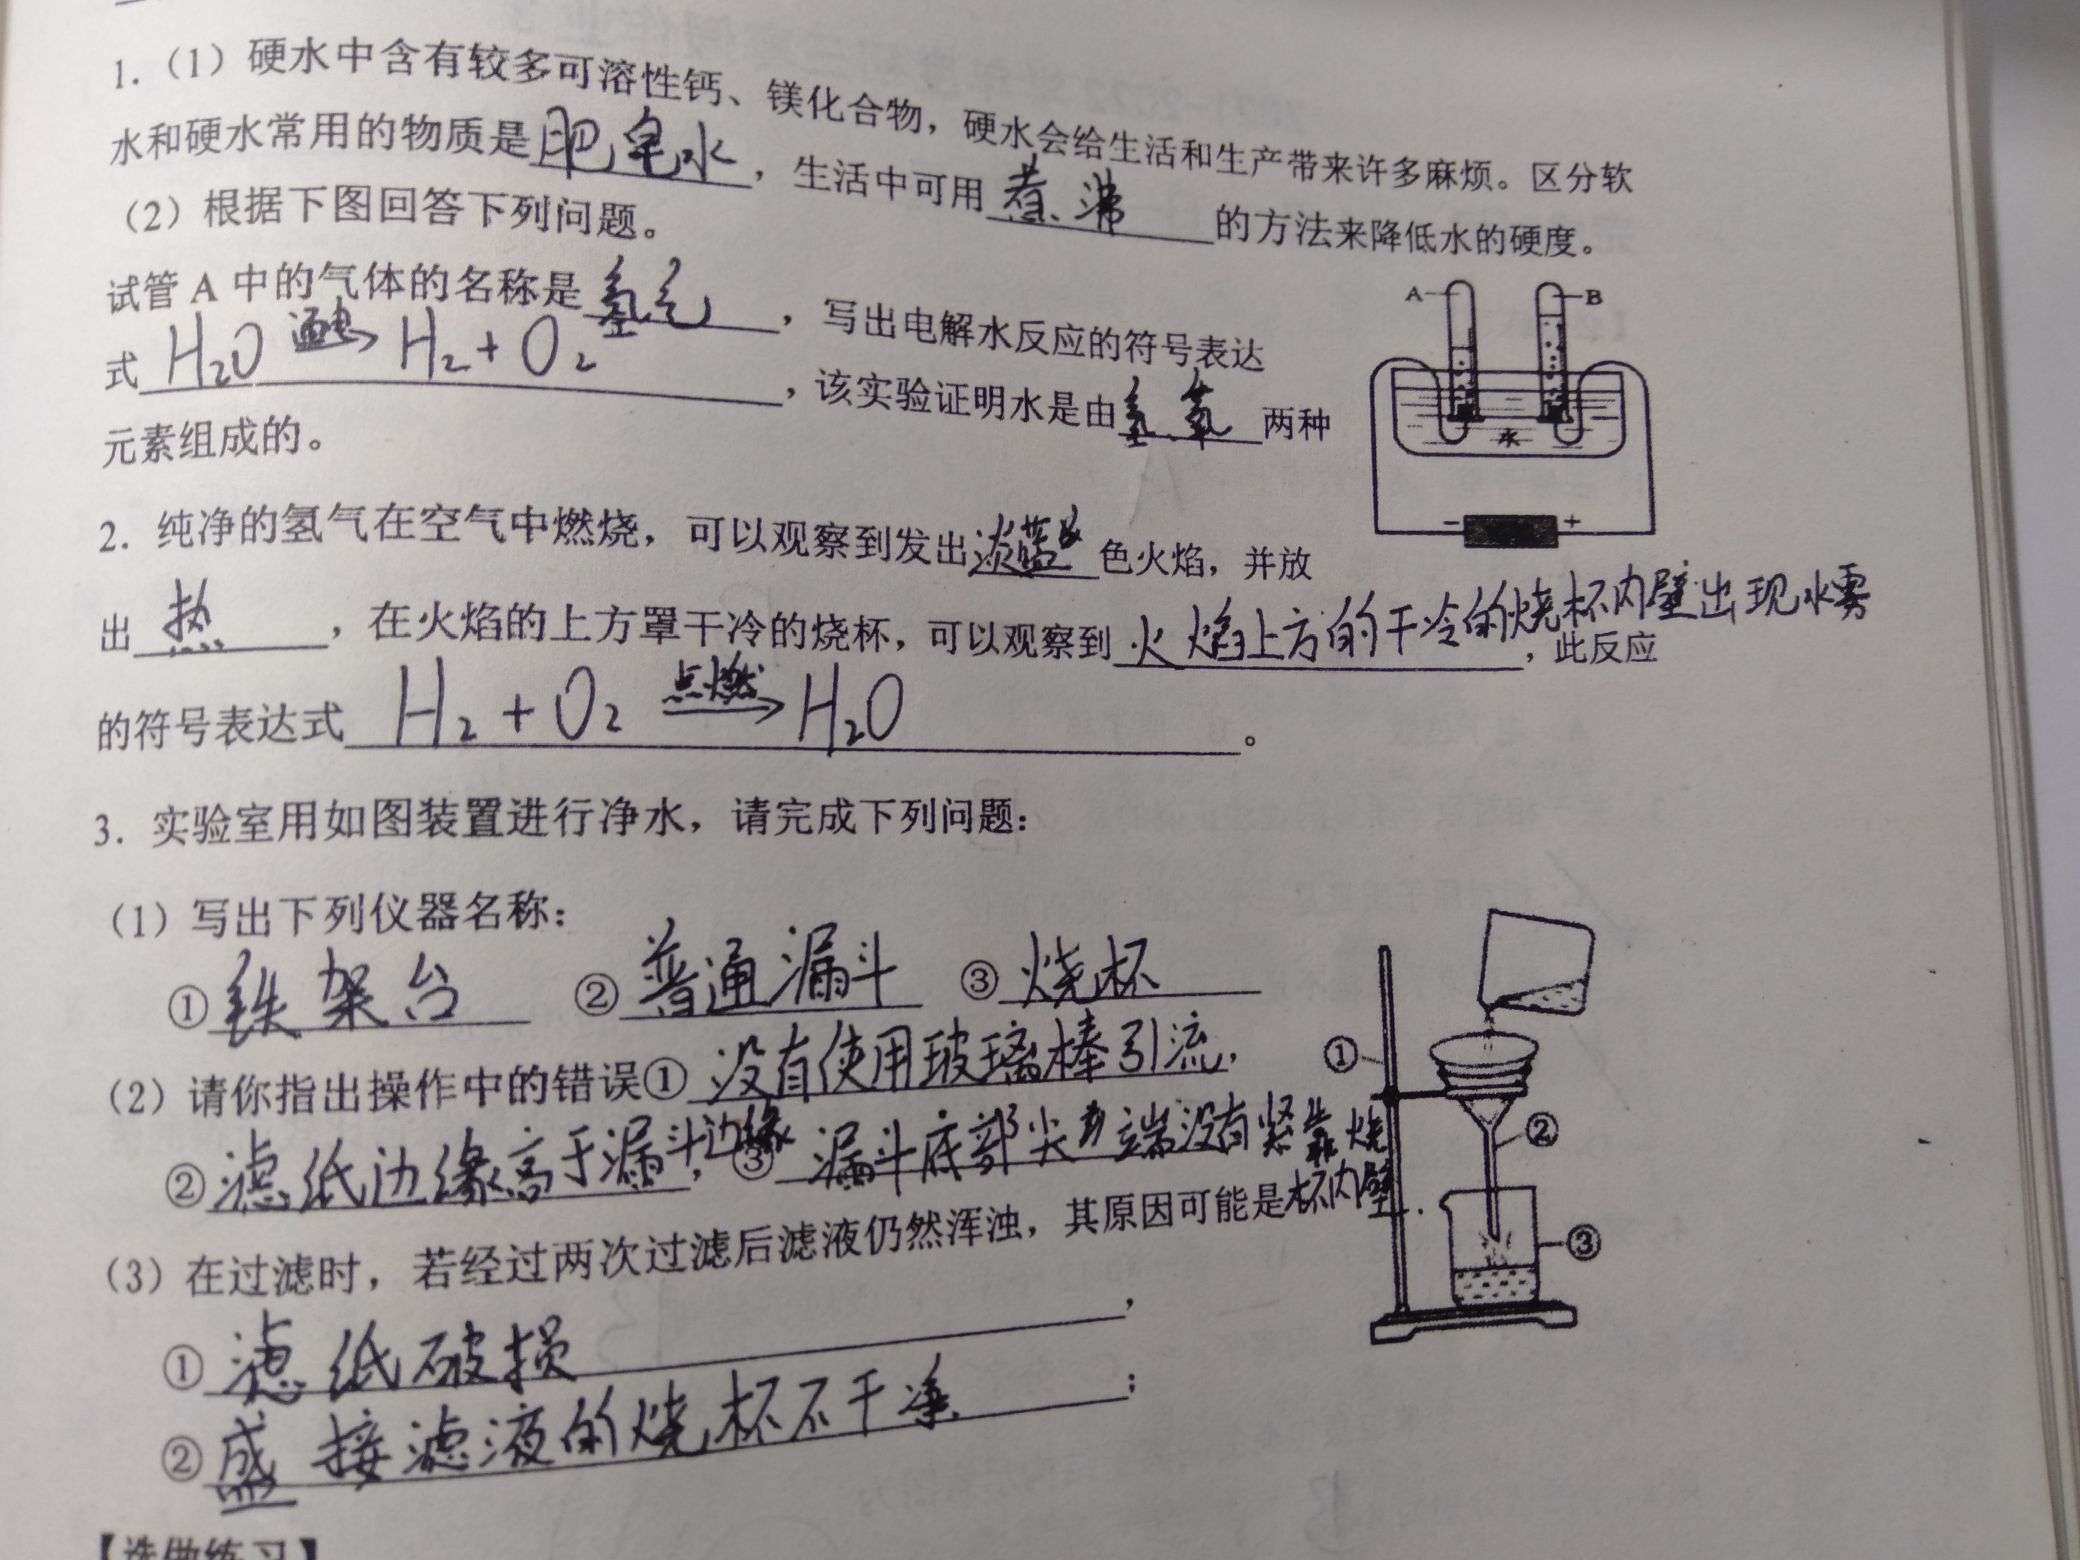 1.（1）硬水中含有较多可溶性钙、镁化合物，硬水会给生活和生产带来许多麻烦。区分软
水和硬水常用的物质是肥皂水，生活中可用煮沸的方法来降低水的硬度。
（2）根据下图回答下列问题。
试管 A 中的气体的名称是氢气，写出电解水反应的符号表达
式 H₂O 通电→ H₂+O₂，该实验证明水是由氢、氧两种
元素组成的。
A B
水
- +
2. 纯净的氢气在空气中燃烧，可以观察到发出淡蓝色火焰，并放
出热，在火焰的上方罩干冷的烧杯，可以观察到火焰上方的干冷的烧杯内壁出现水雾，此反应
的符号表达式 H₂+O₂ 点燃→ H₂O。
3. 实验室用如图装置进行净水，请完成下列问题：
（1）写出下列仪器名称：
①铁架台 ②普通漏斗 ③烧杯
（2）请你指出操作中的错误①没有使用玻璃棒引流，
②滤纸边缘高于漏斗边缘，③漏斗底部尖端没有紧靠烧
杯内壁.
① ② ③
（3）在过滤时，若经过两次过滤后滤液仍然浑浊，其原因可能是
①滤纸破损，
②盛接滤液的烧杯不干净；
【选做练习】